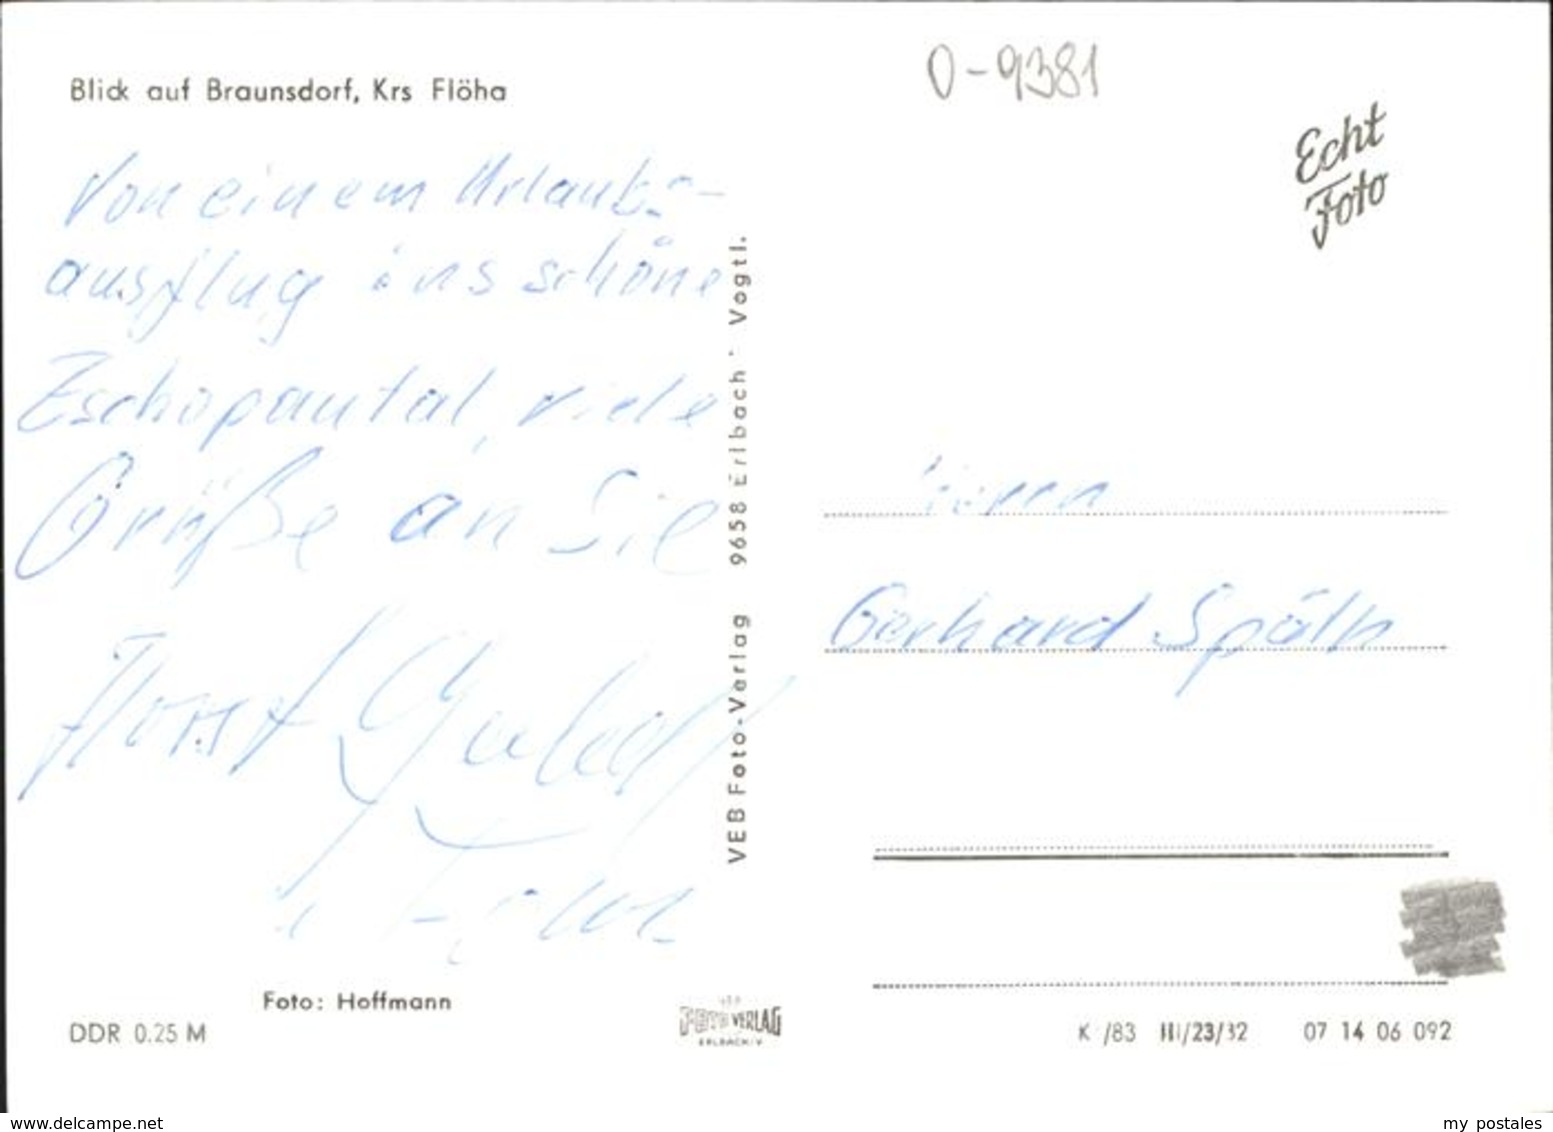 Blick auf Braunsdorf, Krs Flöha
O-9381
Echt
Foto
Von einem Urlaubs-
ausflug ins schöne
Zschopautal, viele
Grüße an Sie
Horst
VEB Foto-Verlag 9658 Erlbach Vogtl.
Herrn
Gerhard
Foto: Hoffmann
DDR 0.25 M
VEB
FOTO VERLAG
ERLBACH/V
K /83 III/23/32 07 14 06 092
www.delcampe.net
my postales